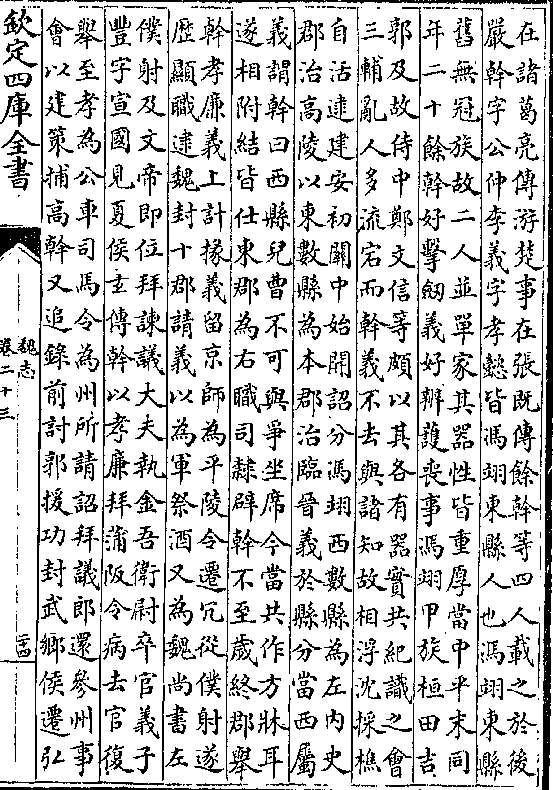 在諸葛亮傳游楚事在張既傳餘幹等四人載之於後
嚴幹字公仲李義字孝懿皆馮翊東縣人也馮翊東縣
舊無冠族故二人並單家其器性皆重厚當中平末同
年二十餘幹好擊劒義好辦護喪事馮翊甲族桓田吉
郭及故侍中鄭文信等頗以其各有器實共紀識之會
三輔亂人多流宕而幹義不去與諸知故相浮沈採樵
自活逮建安初關中始開詔分馮翊西數縣為左内史
郡治高陵以東數縣為本郡治臨晉義於縣分當西屬
義謂幹曰西縣兒曹不可與爭坐席今當共作方牀耳
遂相附結皆仕東郡為右職司隸辟幹不至歲終郡舉
幹孝廉義上計掾義留京師為平陵令遷冗從僕射遂
歷顯職逮魏封十郡請義以為軍祭酒又為魏尚書左
僕射及文帝即位拜諫議大夫執金吾衛尉卒官義子
豐字宣國見夏侯玄傳幹以孝廉拜蒲阪令病去官復
舉至孝為公車司馬令為州所請詔拜議郎還參州事
會以建策捕高幹又追錄前討郭援功封武鄉侯遷弘
欽定四庫全書
魏志
卷二十三
二四